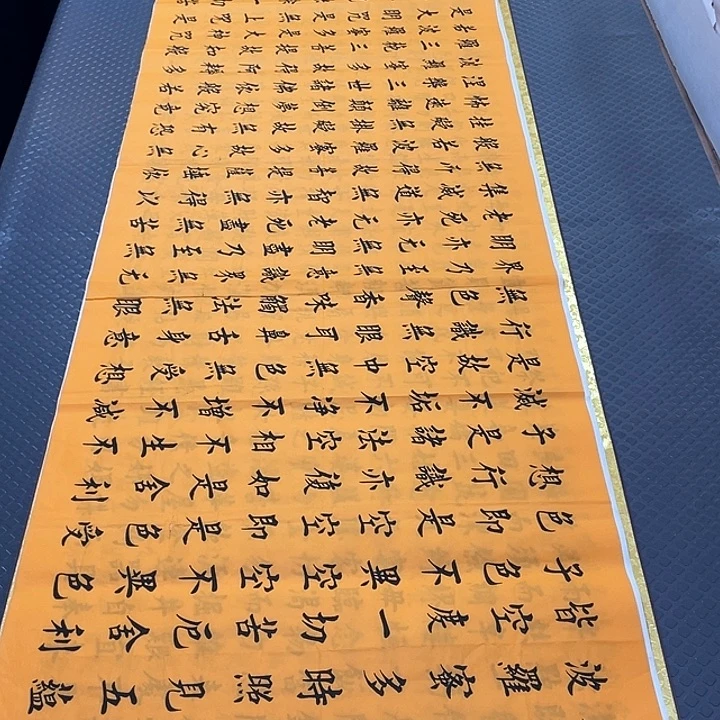 波羅蜜多時照見五蘊
皆空度一切苦厄舍利
子色不異空空不異色
色即是空空即是色受
想行識亦復如是舍利
子是諸法空相不生不
滅不垢不淨不增不減
是故空中無色無受想
行識無眼耳鼻舌身意
無色聲香味觸法無眼
界乃至無意識界無无
明亦无無明盡乃至無
老死亦无老死盡無苦
集滅道無智亦無得以
無所得故菩提薩埵依
般若波羅蜜多故心無
罣礙無罣礙故無有恐
怖遠離顛倒夢想究竟
涅槃三世諸佛依般若
波羅蜜多故得阿耨多
羅三藐三菩提故知般
若波羅蜜多是大神咒
是大明咒是無上咒是